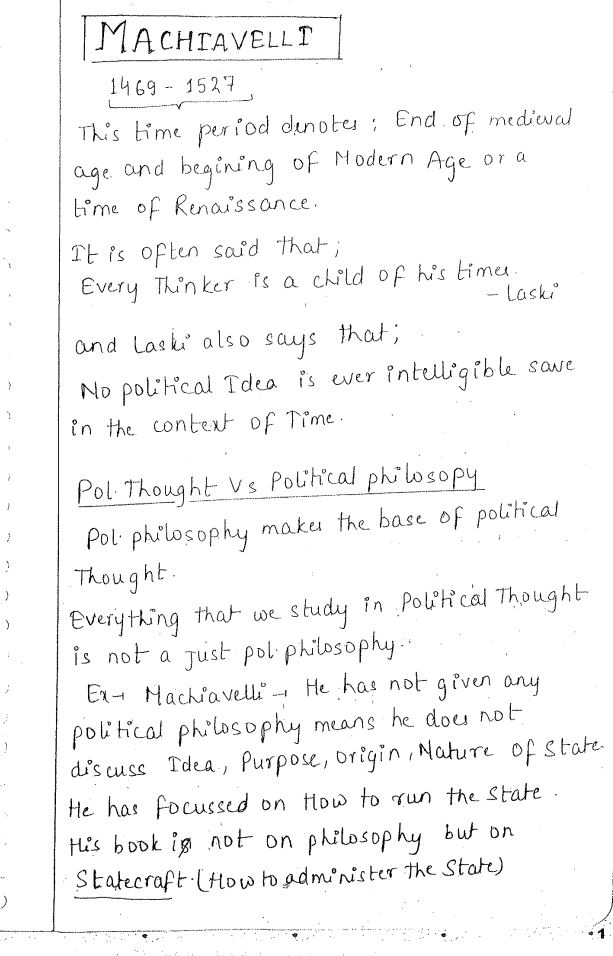 MACHIAVELLI
1469 - 1527
This time period denotes; End of medieval
age and begining of Modern Age or a
time of Renaissance.
It is often said that;
Every Thinker is a child of his times.
- Laski
and Laski also says that;
No political Idea is ever intelligible save
in the context of Time.
Pol. Thought Vs Political philosopy
Pol. philosophy makes the base of political
Thought.
Everything that we study in Political Thought
is not a just pol. philosophy.
Ex→ Machiavelli → He has not given any
political philosophy means he does not
discuss Idea, Purpose, Origin, Nature of State.
He has focussed on How to run the State.
His book is not on philosophy but on
Statecraft. (How to administer the State)
1